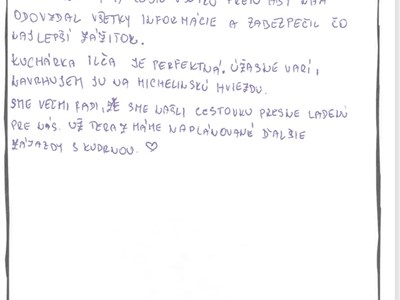 ODOVZDAL VŠETKY INFORMÁCIE A ZABEZPEČIL ČO
NAJLEPŠÍ ZÁŽITOK.
KUCHÁRKA ILČA JE PERFEKTNÁ. ÚŽASNE VARÍ,
NAVRHUJEM JU NA MICHELINSKÚ HVIEZDU.
SME VEĽMI RADI, ŽE SME NAŠLI CESTOVKU PRESNE LADENÚ
PRE NÁS. UŽ TERAZ MÁME NAPLÁNOVANÉ ĎALŠIE
ZÁJAZDY S KUDRNOU. ♡